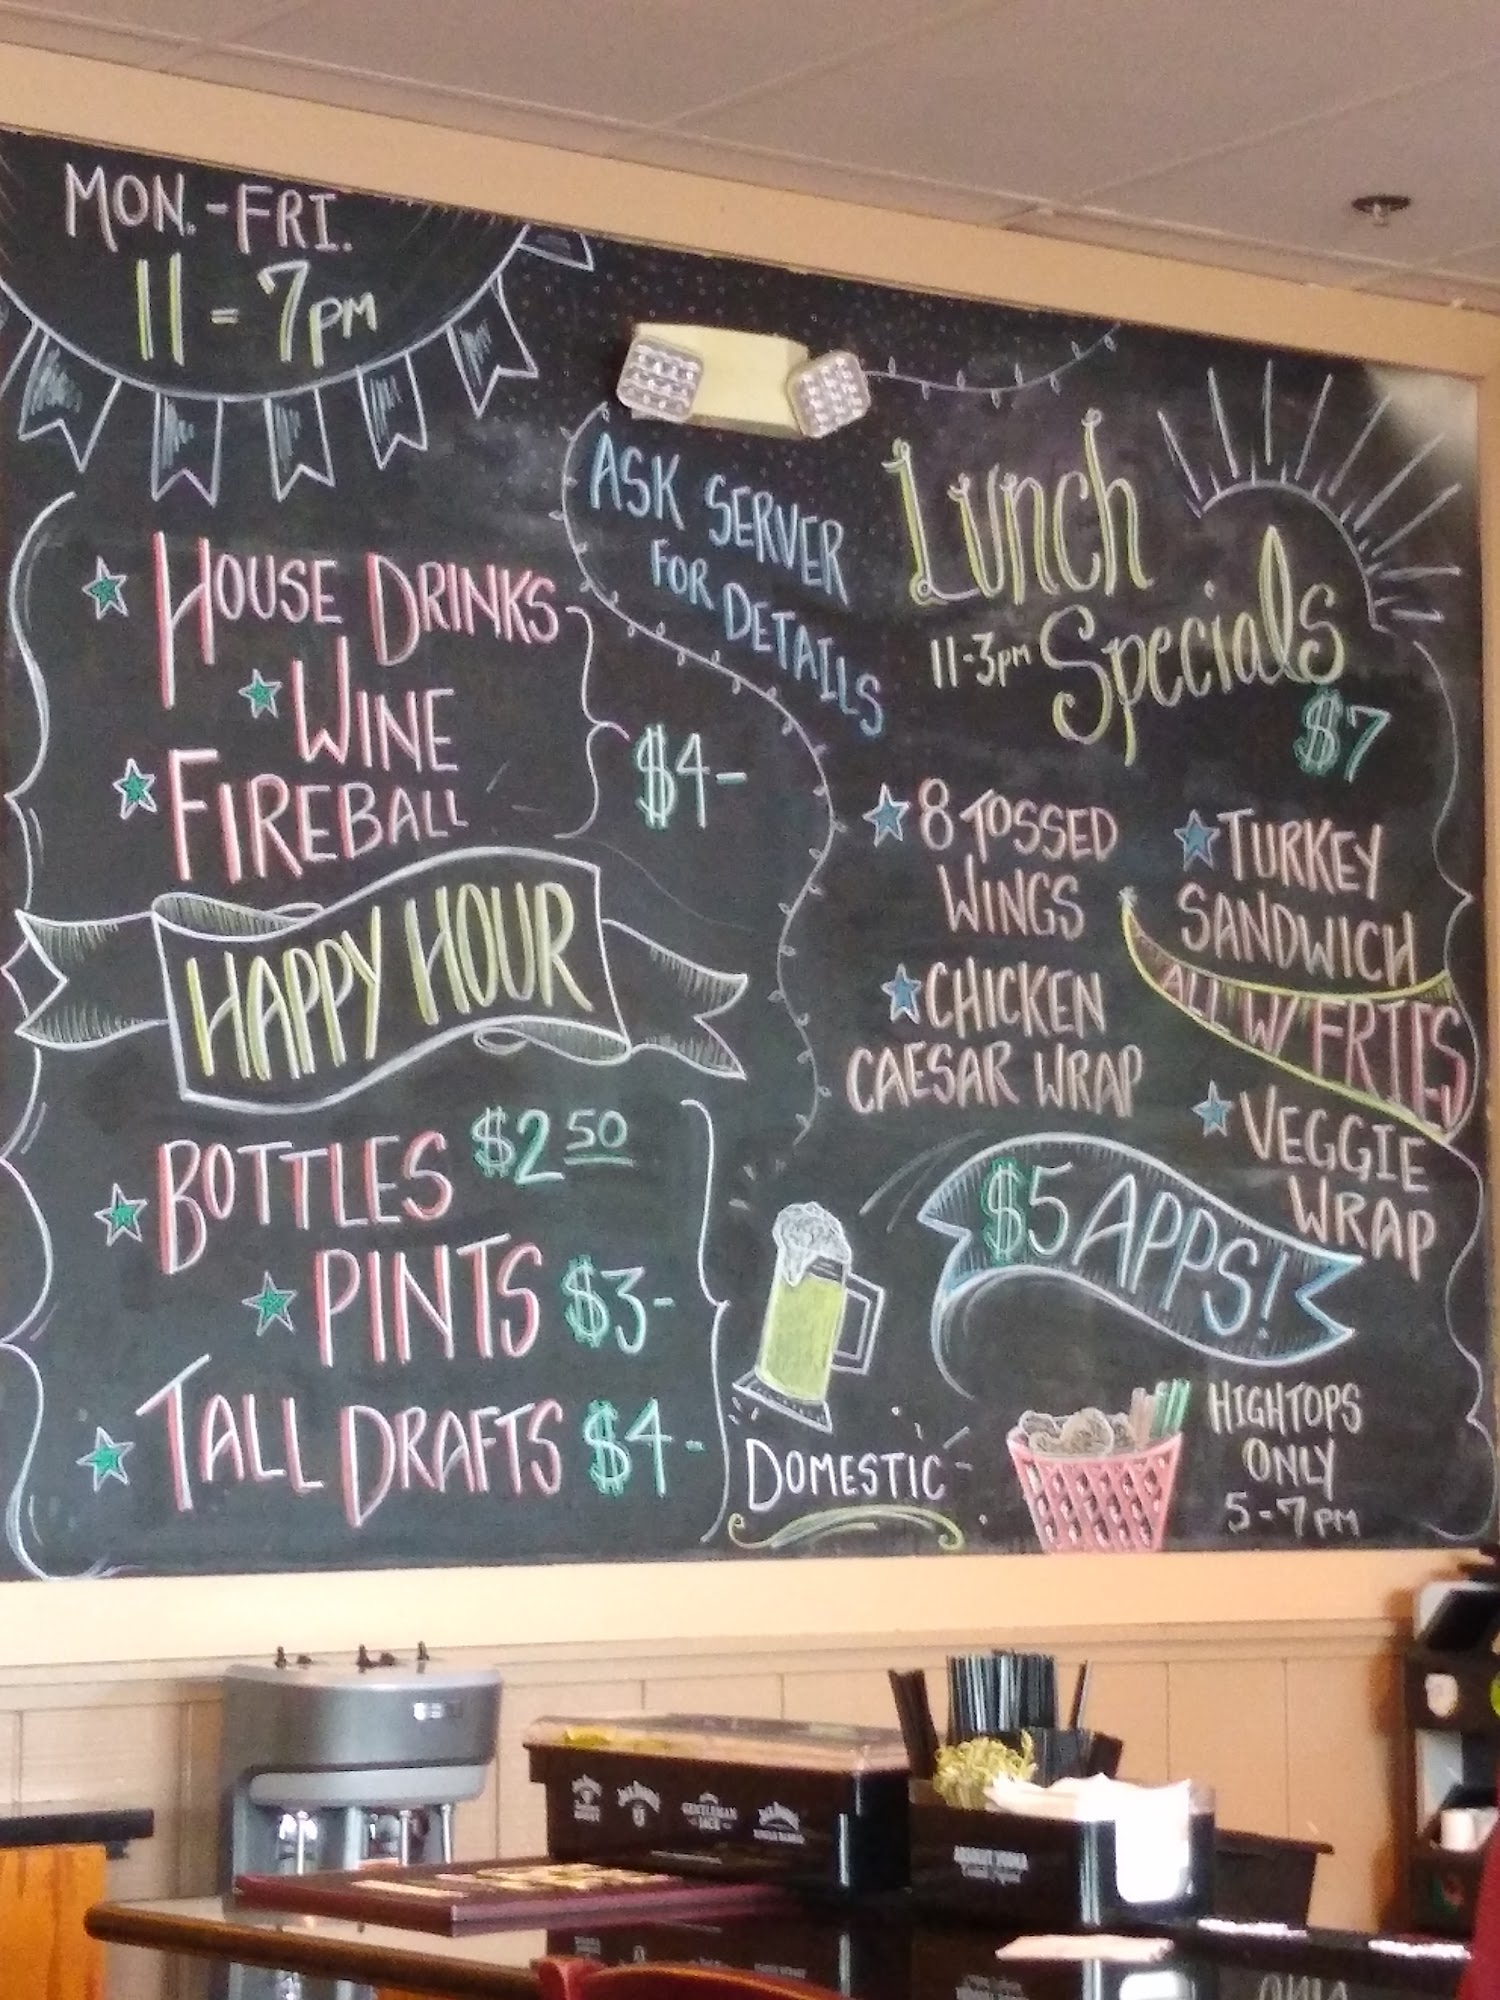 MON.-FRI.
11-7PM
ASK SERVER
FOR DETAILS
★ HOUSE DRINKS
★ WINE
★ FIREBALL
$4-
HAPPY HOUR
★ BOTTLES $2 50
★ PINTS $3-
★ TALL DRAFTS $4-
DOMESTIC
Lunch
11-3pm Specials
$7
★ 8 TOSSED
WINGS
★ TURKEY
SANDWICH
★ CHICKEN
CAESAR WRAP
ALL W/ FRIES
★ VEGGIE
WRAP
$5 APPS!
HIGHTOPS
ONLY
5-7PM
GENTLEMAN
JACK
ABSOLUT VODKA